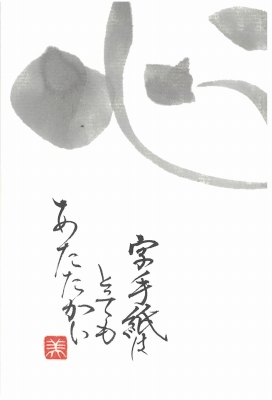 心
字手紙は
とっても
あたたかい
美